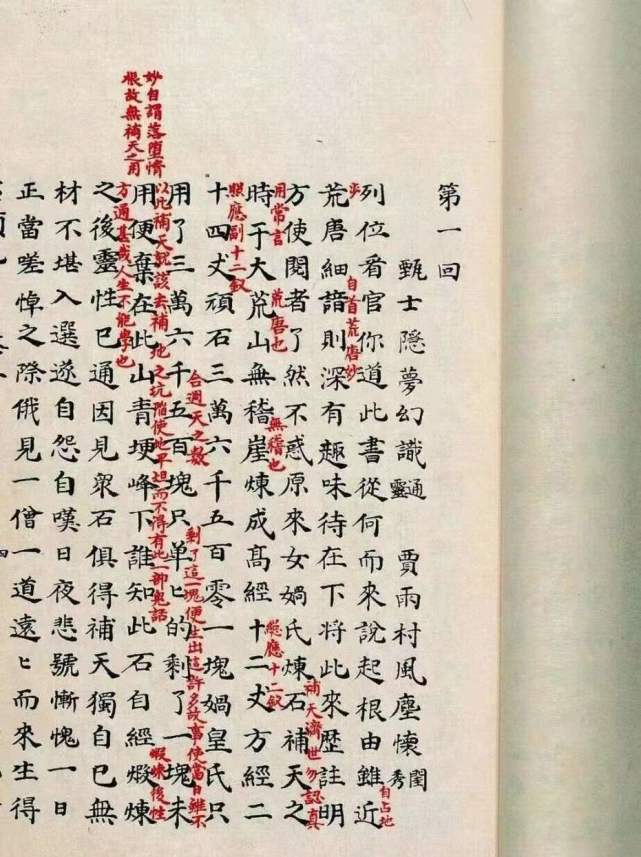 第一回
甄士隱夢幻識通靈　賈雨村風塵懷閨秀
列位看官你道此書從何而來說起根由雖近
自占地
步
荒唐細諳則深有趣味待在下將此來歷註明
自首荒唐妙
方使閱者了然不惑原來女媧氏煉石補天之
補天濟世勿認真
用常言
時于大荒山無稽崖煉成高經十二丈方經二
荒唐也
無稽也
總應十二釵
十四丈頑石三萬六千五百零一塊媧皇氏只
照應副十二釵
用了三萬六千五百塊只單〻的剩了一塊未
合週天之數
剩了這一塊便生出這許多故事使當日雖不
以此補天就該去補地之坑陷使地平坦而不得有此一部鬼話
用便棄在此山青埂峰下誰知此石自經煅煉
妙自謂落墮情
根故無補天之用
煅煉後性
方通甚哉人生不能學也
之後靈性已通因見衆石俱得補天獨自己無
材不堪入選遂自怨自嘆日夜悲號慚愧一日
正當嗟悼之際俄見一僧一道遠〻而來生得